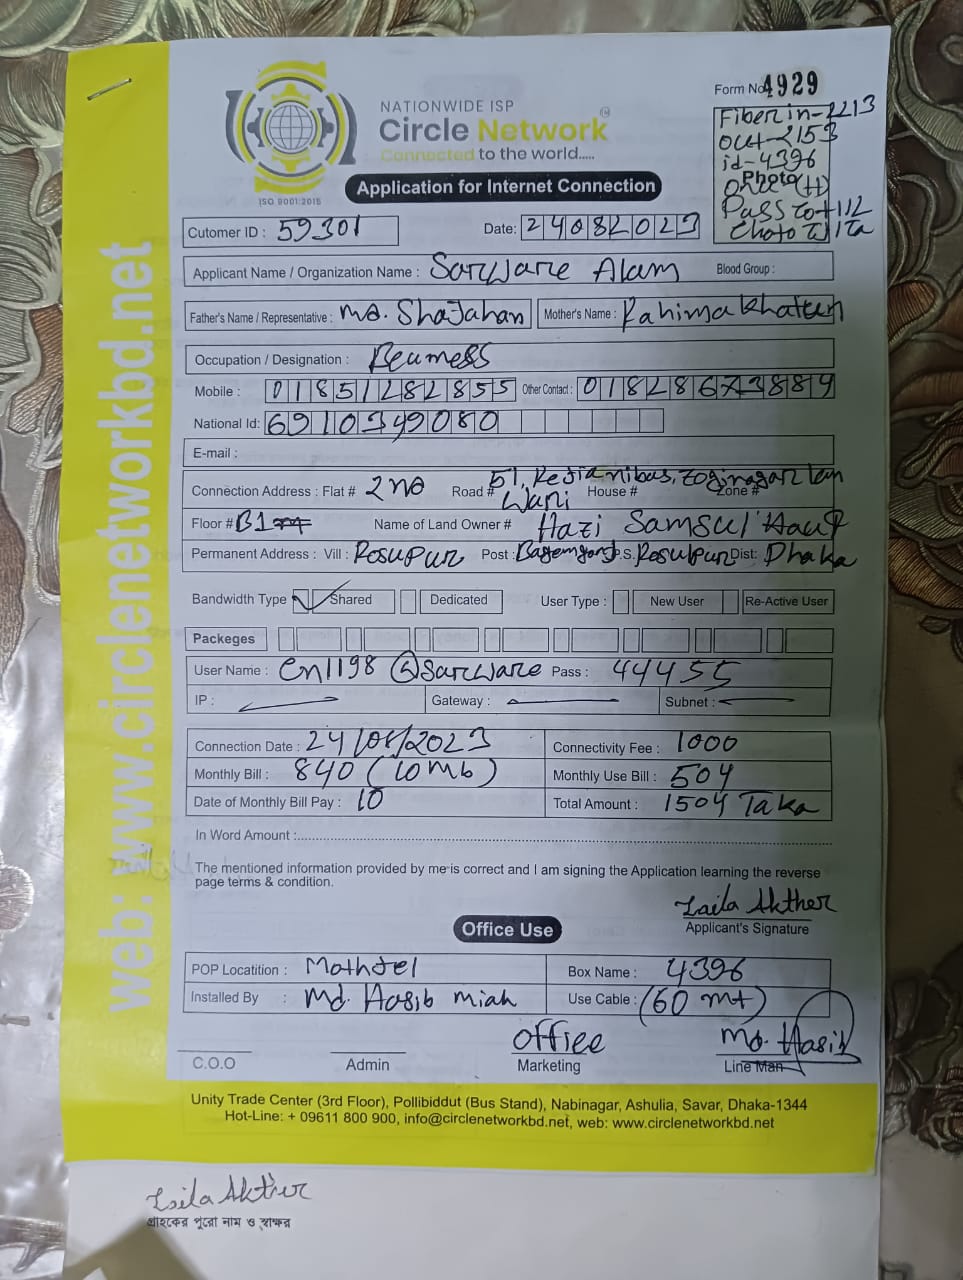 NATIONWIDE ISP
Circle Network
Connected to the world.....
ISO 9001:2015
Form No 4929
Fiber in-2213
out-2153
id-4396
Photo
Onu (H)
Pass to+112
Choto
Application for Internet Connection
Cutomer ID : 59301
Date: 24082023
Applicant Name / Organization Name : Sarware Alam Blood Group :
Father's Name / Representative : Md. Shajahan Mother's Name : Rahima Khatun
Occupation / Designation :
Mobile : 01851282855 Other Contact : 01828673889
National Id: 6910349080
E-mail :
Connection Address : Flat # 2 no Road # 51, House # Zone #
Wari
Floor # B1 Name of Land Owner # Hazi Samsul
Permanent Address : Vill : Rosupur Post : P.S. Rosulpur Dist: Dhaka
Bandwidth Type Shared Dedicated User Type : New User Re-Active User
Packeges
User Name : cn1198@sarware Pass : 44455
IP : Gateway : Subnet :
Connection Date : 24/08/2023 Connectivity Fee : 1000
Monthly Bill : 840 (10 mb) Monthly Use Bill : 504
Date of Monthly Bill Pay : 10 Total Amount : 1504 Taka
In Word Amount :
The mentioned information provided by me is correct and I am signing the Application learning the reverse
page terms & condition.
Laila Akther
Applicant's Signature
Office Use
POP Locatition : Box Name : 4396
Installed By : Md. Hasib miah Use Cable : (60 mt)
office Md. Hasib
C.O.O Admin Marketing Line Man
Unity Trade Center (3rd Floor), Pollibiddut (Bus Stand), Nabinagar, Ashulia, Savar, Dhaka-1344
Hot-Line: + 09611 800 900, info@circlenetworkbd.net, web: www.circlenetworkbd.net
web: www.circlenetworkbd.net
Laila Akther
গ্রাহকের পুরো নাম ও স্বাক্ষর